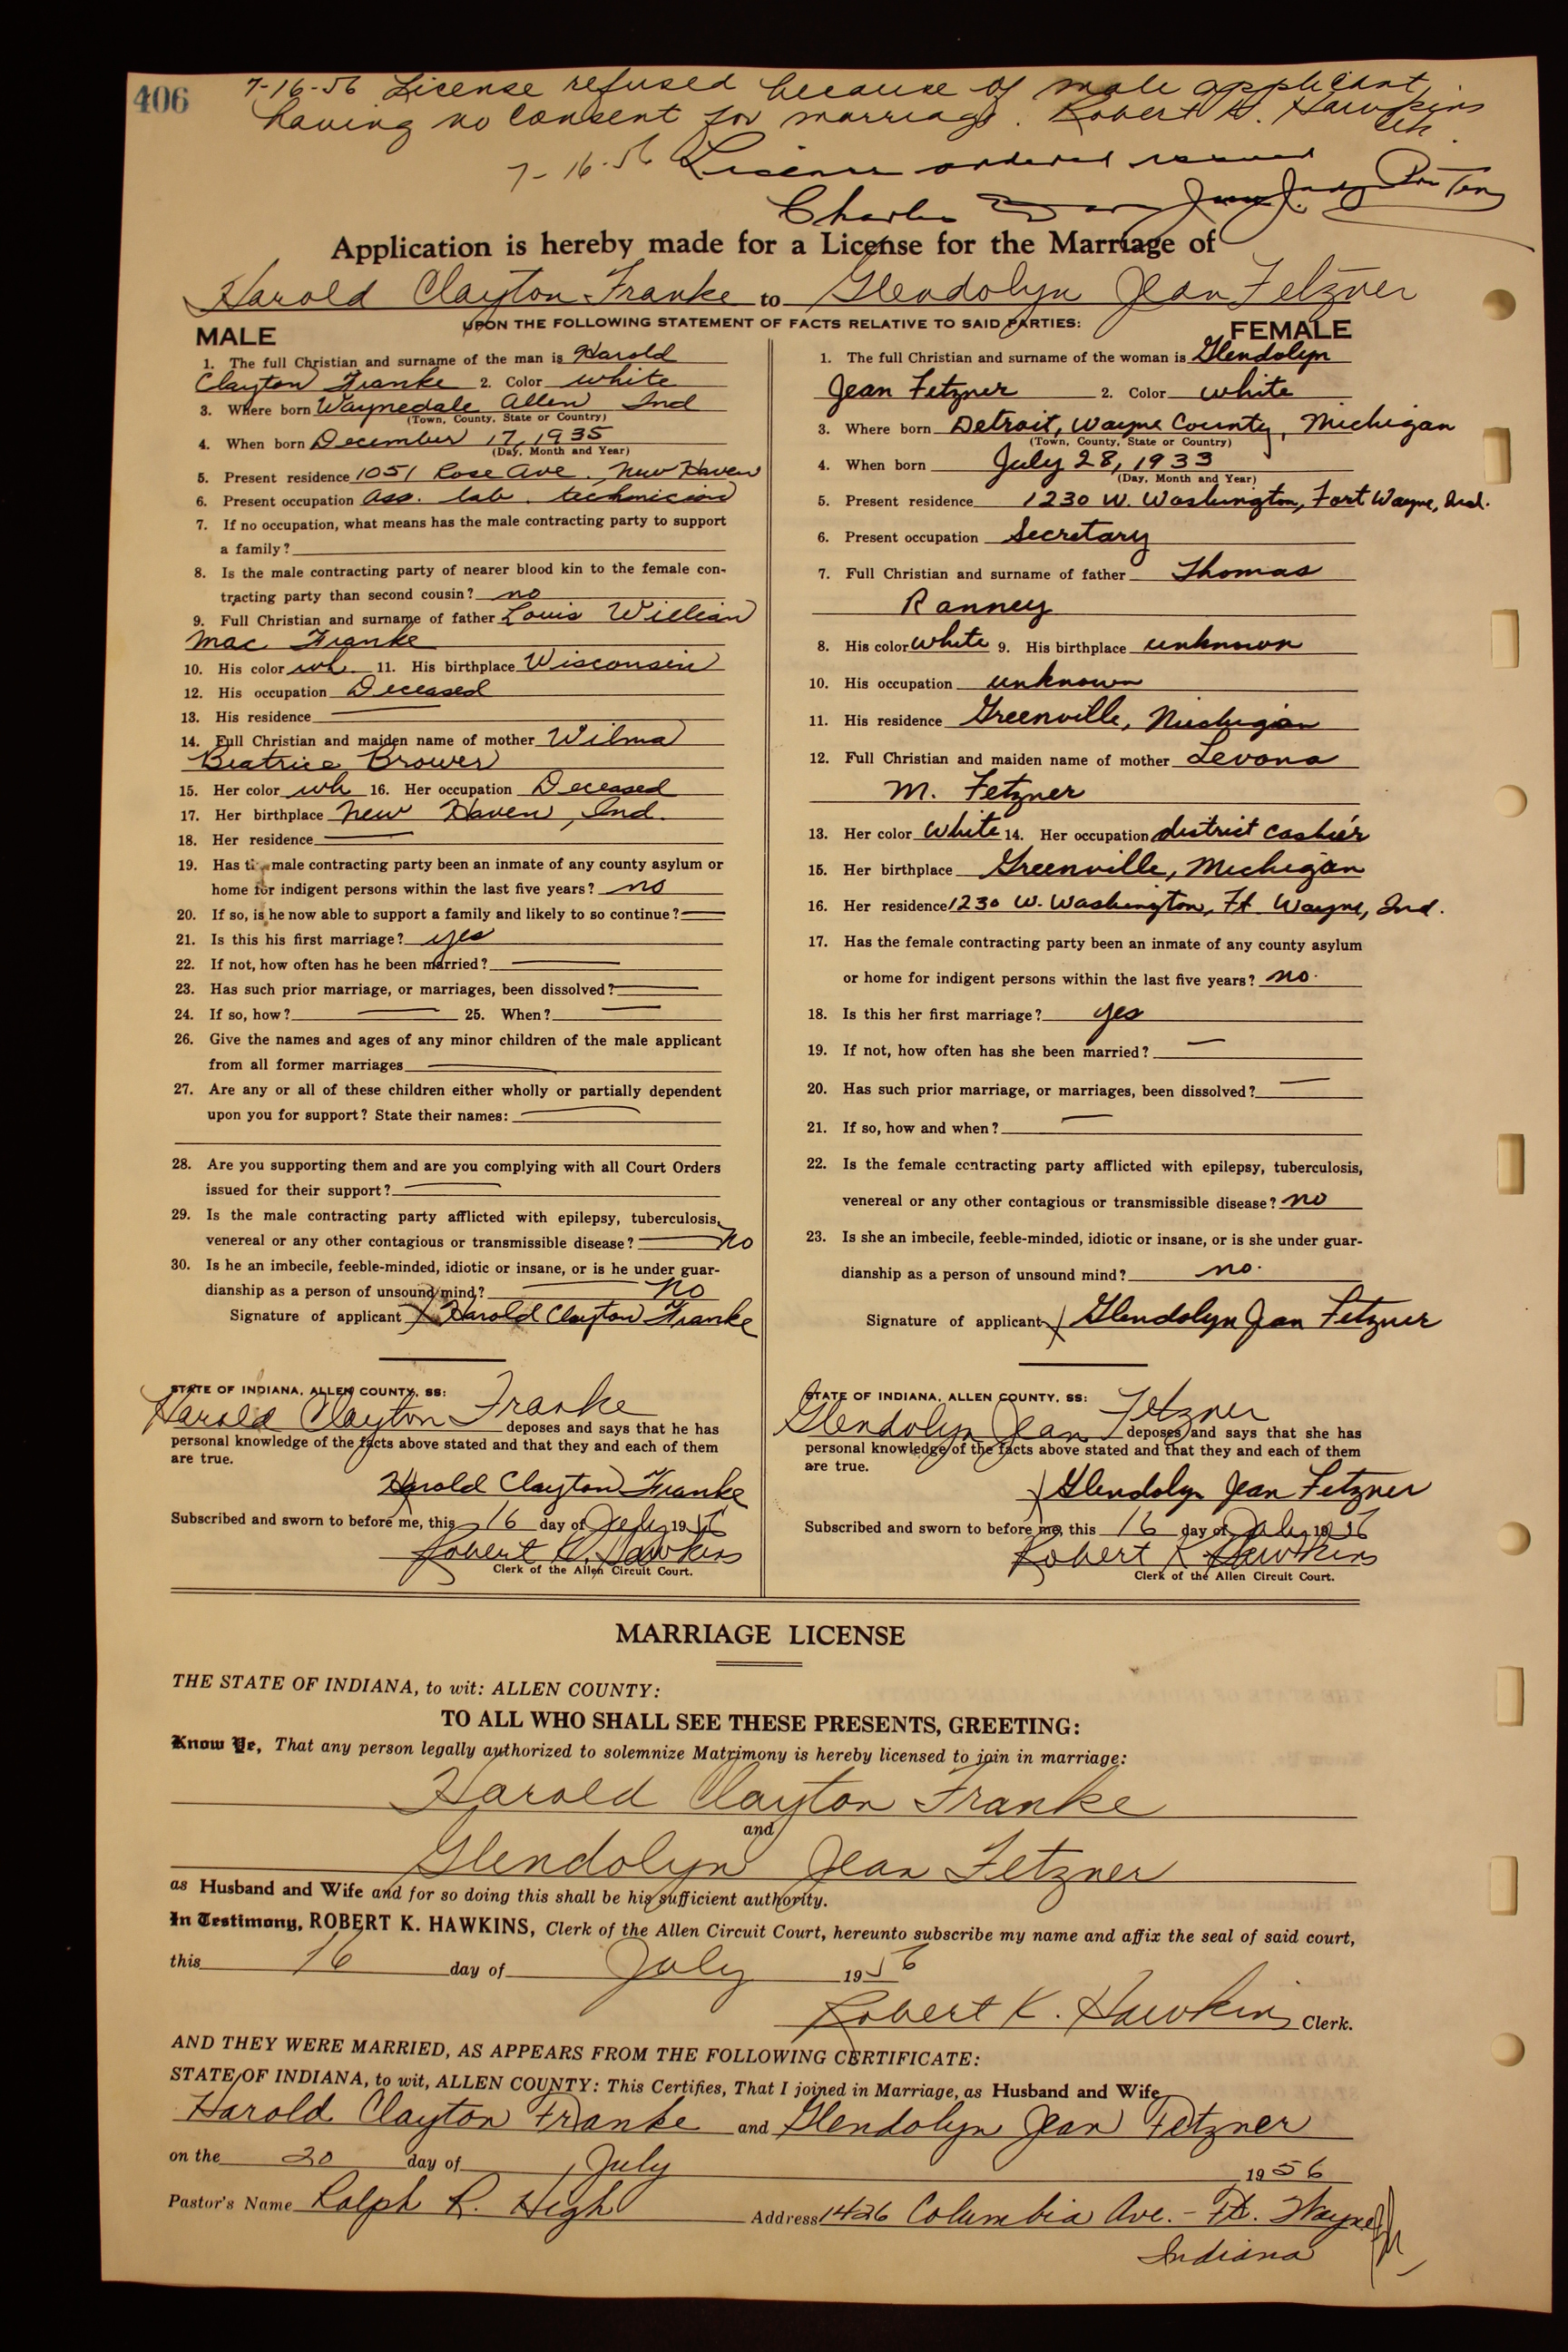 406
7-16-56 License refused because of male applicant
having no consent for marriage. Robert K. Hawkins
Clk.
7-16-56 License ordered issued
Charles Judge Pro Tem
Application is hereby made for a License for the Marriage of
Harold Clayton Franke to Glendolyn Jean Fetzner
UPON THE FOLLOWING STATEMENT OF FACTS RELATIVE TO SAID PARTIES:
MALE
1. The full Christian and surname of the man is Harold
Clayton Franke 2. Color white
3. Where born Waynedale Allen Ind
(Town, County, State or Country)
4. When born December 17, 1935
(Day, Month and Year)
5. Present residence 1051 Rose Ave., New Haven
6. Present occupation Ass. lab. technician
7. If no occupation, what means has the male contracting party to support
a family?
8. Is the male contracting party of nearer blood kin to the female con-
tracting party than second cousin? no
9. Full Christian and surname of father Louis William
Mac Franke
10. His color wh 11. His birthplace Wisconsin
12. His occupation Deceased
13. His residence
14. Full Christian and maiden name of mother Wilma
Beatrice Brower
15. Her color wh 16. Her occupation Deceased
17. Her birthplace New Haven, Ind.
18. Her residence
19. Has the male contracting party been an inmate of any county asylum or
home for indigent persons within the last five years? no
20. If so, is he now able to support a family and likely to so continue?
21. Is this his first marriage? yes
22. If not, how often has he been married?
23. Has such prior marriage, or marriages, been dissolved?
24. If so, how? 25. When?
26. Give the names and ages of any minor children of the male applicant
from all former marriages
27. Are any or all of these children either wholly or partially dependent
upon you for support? State their names:
28. Are you supporting them and are you complying with all Court Orders
issued for their support?
29. Is the male contracting party afflicted with epilepsy, tuberculosis,
venereal or any other contagious or transmissible disease? No
30. Is he an imbecile, feeble-minded, idiotic or insane, or is he under guar-
dianship as a person of unsound mind? No
Signature of applicant X Harold Clayton Franke
STATE OF INDIANA, ALLEN COUNTY, SS:
Harold Clayton Franke deposes and says that he has
personal knowledge of the facts above stated and that they and each of them
are true.
Harold Clayton Franke
Subscribed and sworn to before me, this 16 day of July 1956
Robert K. Hawkins
Clerk of the Allen Circuit Court.
FEMALE
1. The full Christian and surname of the woman is Glendolyn
Jean Fetzner 2. Color white
3. Where born Detroit, Wayne County, Michigan
(Town, County, State or Country)
4. When born July 28, 1933
(Day, Month and Year)
5. Present residence 1230 W. Washington, Fort Wayne, Ind.
6. Present occupation Secretary
7. Full Christian and surname of father Thomas
Ranney
8. His color white 9. His birthplace unknown
10. His occupation unknown
11. His residence Greenville, Michigan
12. Full Christian and maiden name of mother Levona
M. Fetzner
13. Her color White 14. Her occupation district cashier
15. Her birthplace Greenville, Michigan
16. Her residence 1230 W. Washington, Ft. Wayne, Ind.
17. Has the female contracting party been an inmate of any county asylum
or home for indigent persons within the last five years? no.
18. Is this her first marriage? yes
19. If not, how often has she been married?
20. Has such prior marriage, or marriages, been dissolved?
21. If so, how and when?
22. Is the female contracting party afflicted with epilepsy, tuberculosis,
venereal or any other contagious or transmissible disease? no
23. Is she an imbecile, feeble-minded, idiotic or insane, or is she under guar-
dianship as a person of unsound mind? no.
Signature of applicant X Glendolyn Jean Fetzner
STATE OF INDIANA, ALLEN COUNTY, SS:
Glendolyn Jean Fetzner deposes and says that she has
personal knowledge of the facts above stated and that they and each of them
are true.
X Glendolyn Jean Fetzner
Subscribed and sworn to before me, this 16 day of July 1956
Robert K Hawkins
Clerk of the Allen Circuit Court.
MARRIAGE LICENSE
THE STATE OF INDIANA, to wit: ALLEN COUNTY:
TO ALL WHO SHALL SEE THESE PRESENTS, GREETING:
Know Ye, That any person legally authorized to solemnize Matrimony is hereby licensed to join in marriage:
Harold Clayton Franke
and
Glendolyn Jean Fetzner
as Husband and Wife and for so doing this shall be his sufficient authority.
In Testimony, ROBERT K. HAWKINS, Clerk of the Allen Circuit Court, hereunto subscribe my name and affix the seal of said court,
this 16 day of July 1956
Robert K. Hawkins Clerk.
AND THEY WERE MARRIED, AS APPEARS FROM THE FOLLOWING CERTIFICATE:
STATE OF INDIANA, to wit, ALLEN COUNTY: This Certifies, That I joined in Marriage, as Husband and Wife
Harold Clayton Franke and Glendolyn Jean Fetzner
on the 20 day of July 1956
Pastor's Name Ralph R. High Address 1426 Columbia Ave. - Ft. Wayne
Indiana